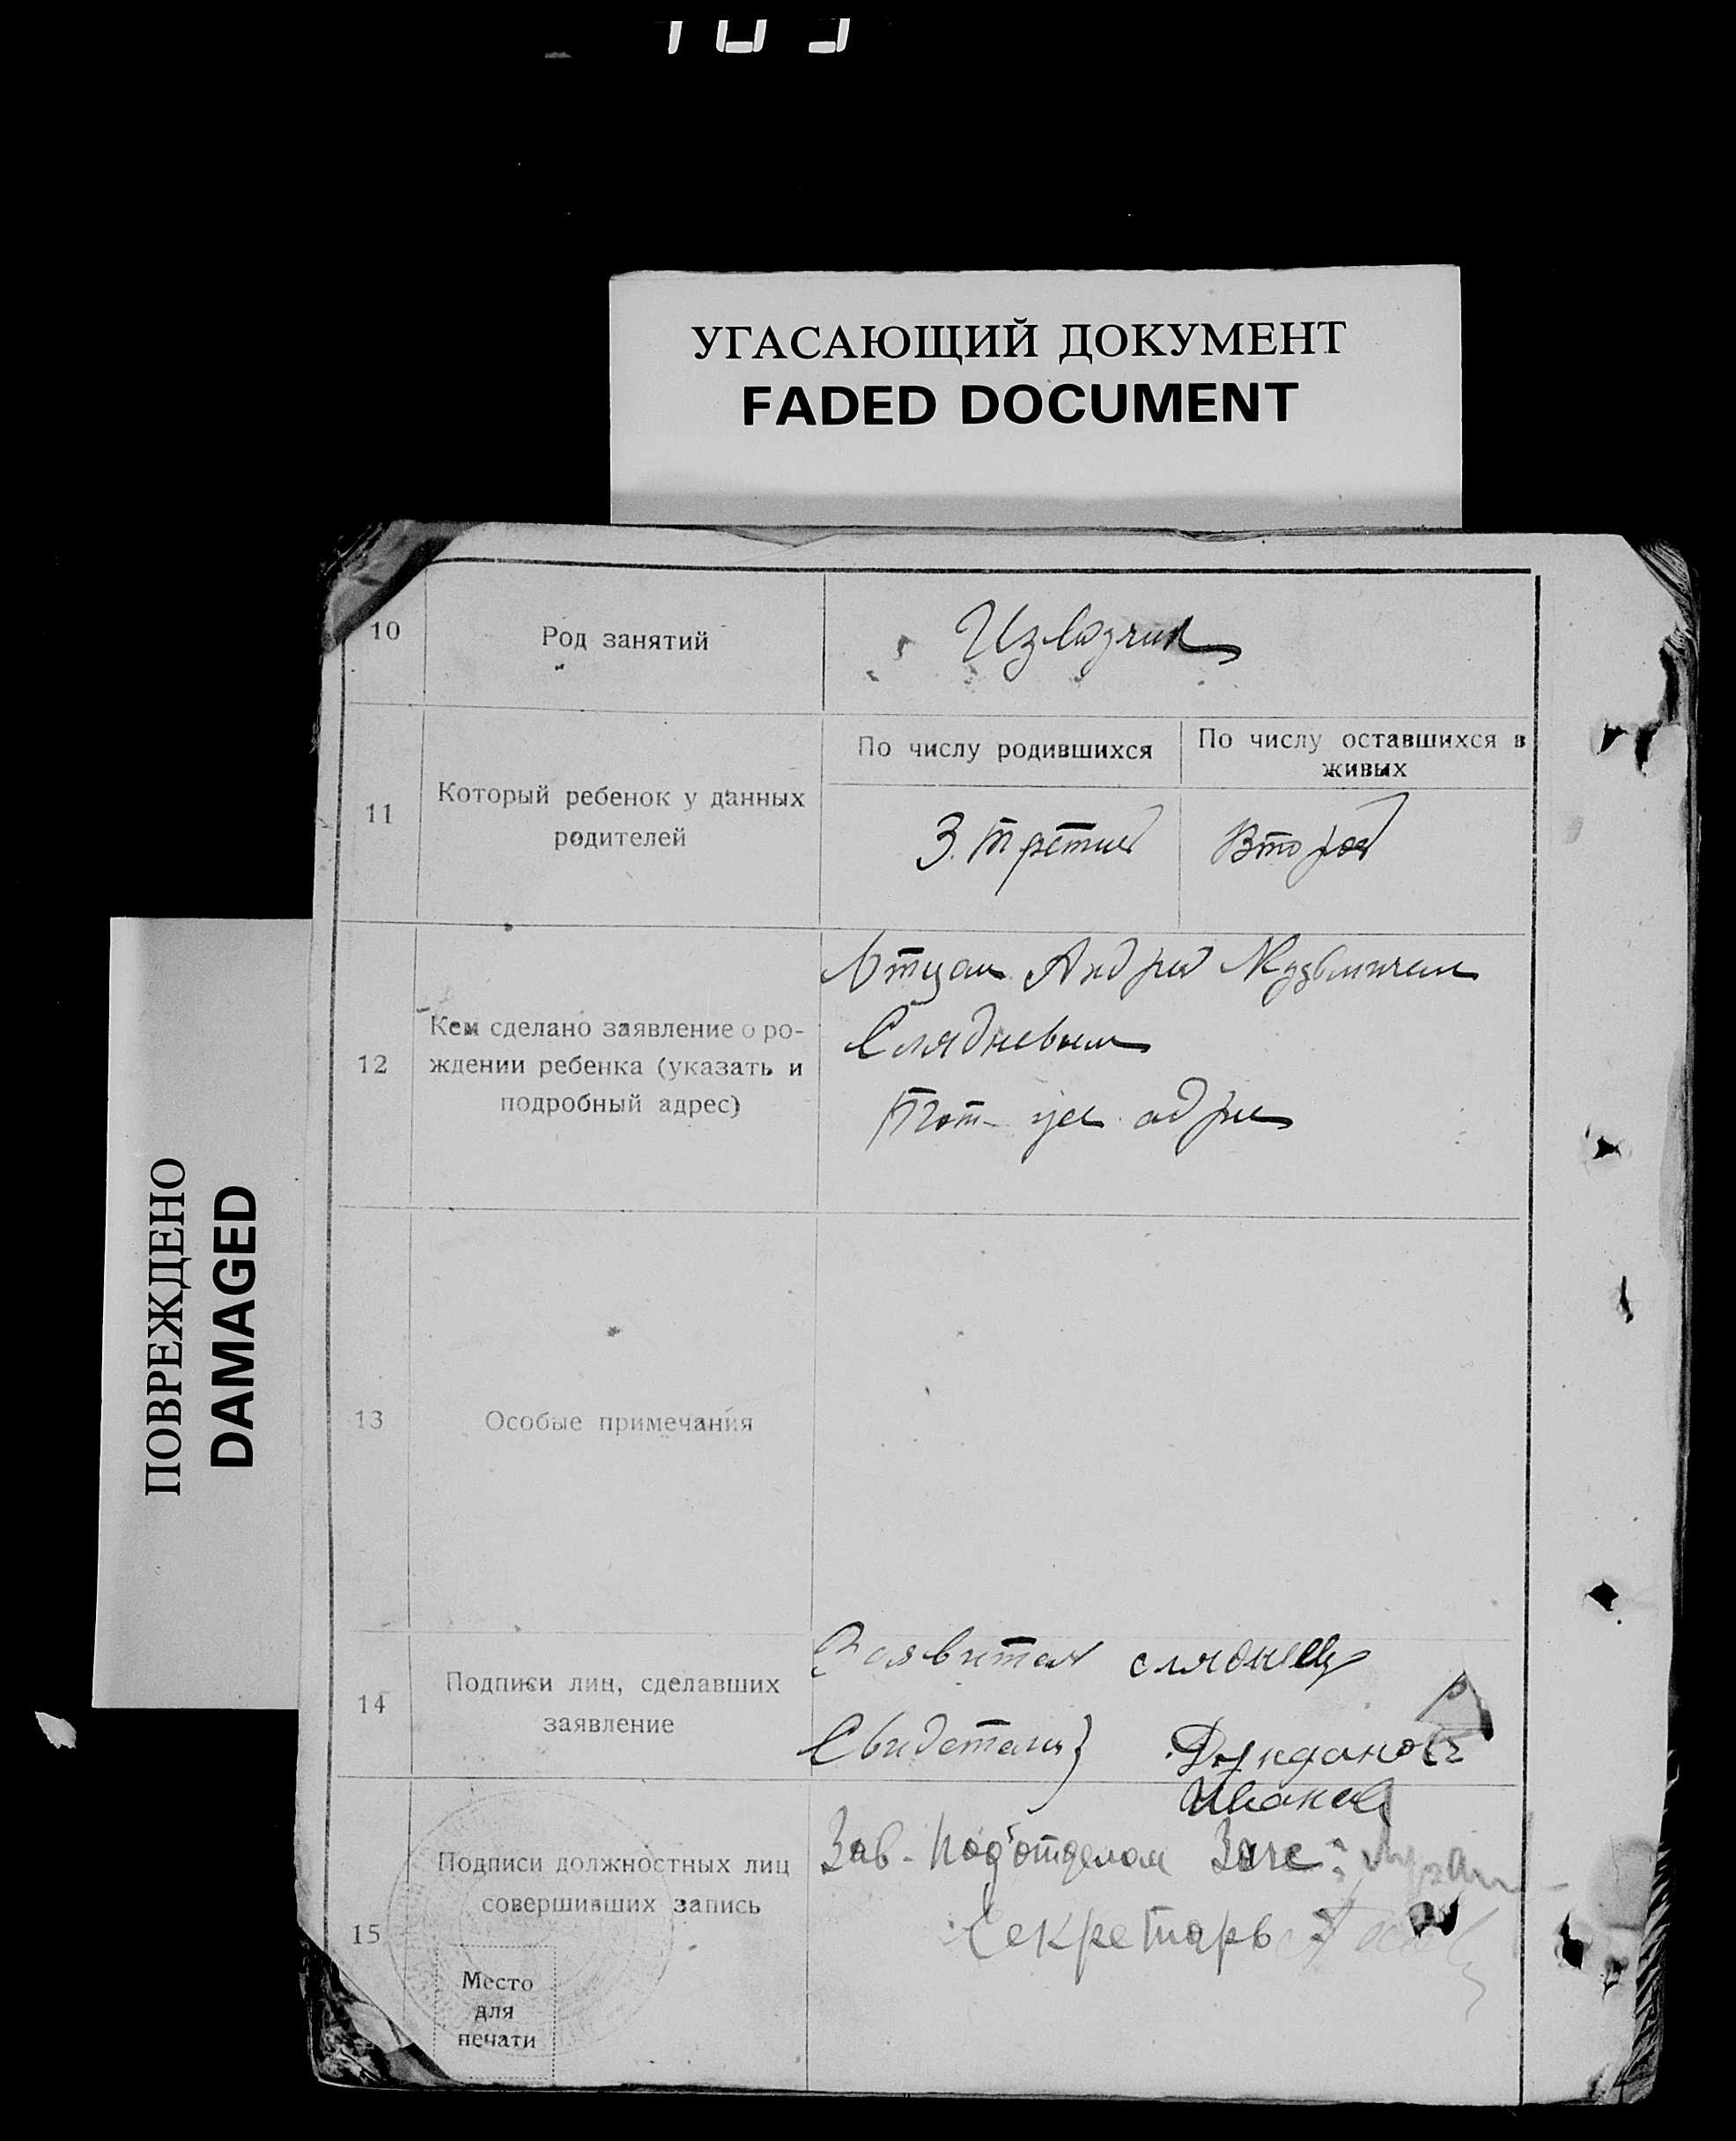 УГАСАЮЩИЙ ДОКУМЕНТ
FADED DOCUMENT
ПОВРЕЖДЕНО
DAMAGED
10
Род занятий
Извозчик
11
Который ребенок у данных
родителей
По числу родившихся
По числу оставшихся в
живых
3. Третий
Второй
12
Кем сделано заявление о ро-
ждении ребенка (указать и
подробный адрес)
Отцом Андрей Кузьмичем
Слядневым
Тот-же адрес
13
Особые примечания
14
Подписи лиц, сделавших
заявление
Заявител сляднев
Свидетели}
Иванов
15
Подписи должностных лиц
совершивших запись
Место
для
печати
Зав. Под'отделом Загс:
Секретарь: